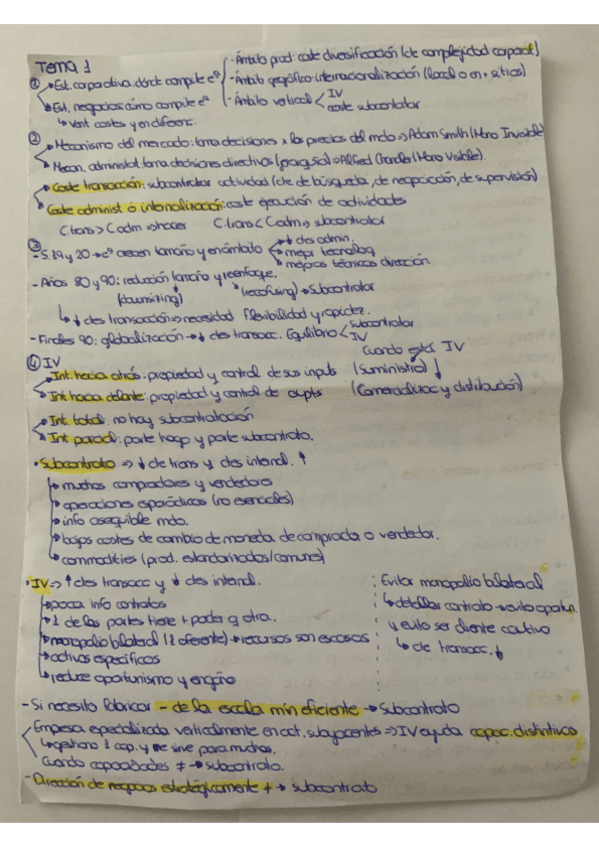 Tema 1
① → Est. corporativa: dónde compite eª
- Ámbito prod: coste diversificación (cte complejidad capacit)
- Ámbito geográfico: internacionalización (local o en + sitios)
- Ámbito vertical < IV
coste subcontratar
→ Est. negocios: cómo compite eª
↳ Vent costes y en diferenc.
② → Mecanismo del mercado: toma decisiones x los precios del mdo → Adam Smith (Mano Invisible)
→ Mecan. administrat: toma decisiones directivos (jerarquía) → Alfred Chandler (Mano Visible).
→ Coste transacción: subcontratar actividad (cte de búsqueda, de negociación, de supervisión)
→ Coste administ o internalización: coste ejecución de actividades
C.trans > C adm → hacer C.trans < C adm → subcontratar
③ - S.19 y 20 → eª crecen tamaño y en ámbito
↓ ctes admin.
mejor tecnolog
mejores técnicas dirección
- Años 80 y 90: reducción tamaño y reenfoque.
(downsizing) (refocusing) → Subcontratar
↳ ↓ ctes transacción → necesidad flexibilidad y rapidez.
- Finales 90: globalización → ↓ ctes transacc. Equilibrio < subcontratar
IV
④ IV
Cuando está IV
→ Int. hacia atrás: propiedad y control de sus inputs (suministra)
→ Int hacia delante: propiedad y control de outputs (Comercializac y distribución)
→ Int. total: no hay subcontratación
→ Int parcial: parte hago y parte subcontrato.
· Subcontrato ⇒ ↓ cte trans y ctes internal. ↑
→ muchos compradores y vendedores
→ operaciones esporádicas (no esenciales)
→ info asequible mdo.
→ bajos costes de cambio de moneda de comprada o vendedor.
→ commodities (prod. estandarizados/comunes)
· IV → ↑ ctes transacc y ↓ ctes internal.
→ poca info contratos
→ 1 de las partes tiene + poder q otra.
→ monopolio bilateral (1 oferente) → recursos son escasos
→ activos específicos
→ reduce oportunismo y engaño
Evitar monopolio bilateral
↳ detallar contrato → evito oportun.
y evito ser cliente cautivo
↳ cte transacc. ↓
- Si necesito fabricar - de la escala mín eficiente → subcontrato
Empresa especializada verticalmente en act. subyacentes ⇒ IV ayuda capac. distintivas
↳ gestiono 1 cap. y me sirve para muchas.
Cuando capacidades ≠ → subcontrato.
- Dirección de negocios estratégicamente ≠ → subcontrato